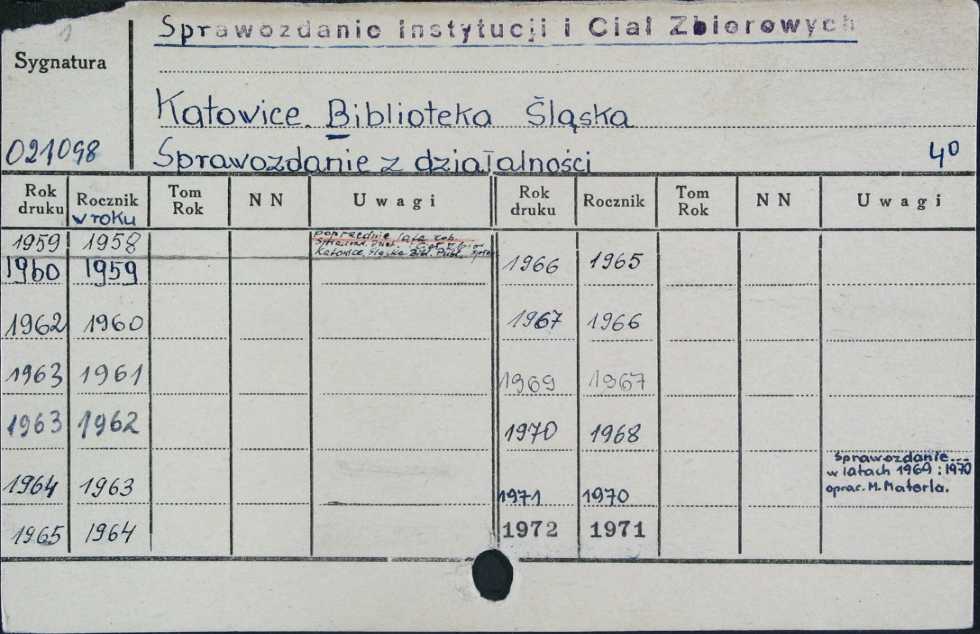 1
Sprawozdanie Instytucji i Ciał Zbiorowych
Sygnatura
Katowice. Biblioteka Śląska
021098
Sprawozdanie z działalności 4⁰
Rok druku Rocznik w roku Tom Rok N N Uwagi Rok druku Rocznik Tom Rok N N Uwagi
1959 1958 poprzednie lata zob.
Katowice. Śląska Bibl. Publ.
1960 1959 1966 1965
1962 1960 1967 1966
1963 1961 1969 1967
1963 1962 1970 1968
Sprawozdanie...
w latach 1969 i 1970
oprac. M. Materla.
1964 1963 1971 1970
1965 1964 1972 1971